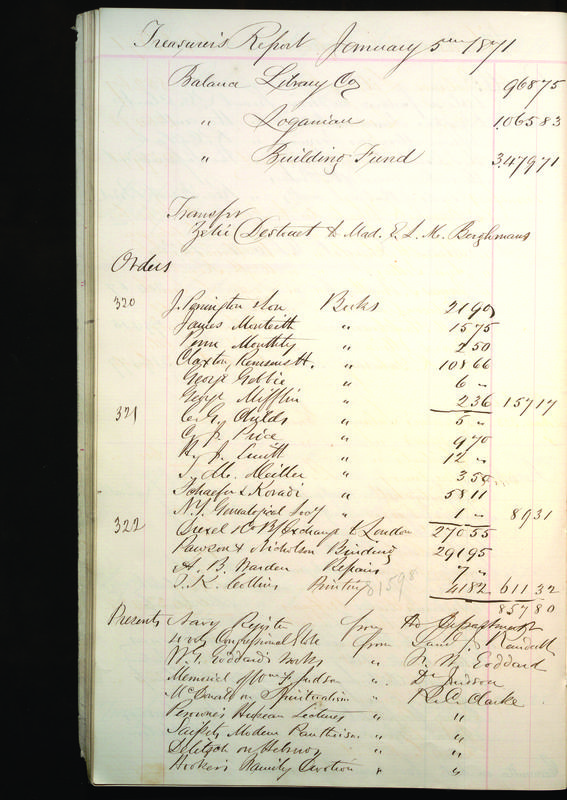 Treasurer's Report January 5th 1871
Balance Library Co 968 75
" Loganian 1.065 83
" Building Fund 3.479 71
Transfer
Zélie Destouet to Mad. E. L. M. Berghmans
Orders
320 J. Penington & Son Books 21 90
James Monteith " 15 75
Penn Monthly " 2 50
Claxton, Remsen & H. " 108 66
George Gebbie " 6 "
George Mifflin " 2 36 157 17
321 C. G. Childs " 5 "
" 9 70
" 12 "
" 3 50
Schaefer & Koradi " 58 11
N.Y. Genealogical Socy " 1 " 89 31
322 Drexel & Co B/Exchange to London 270 55
Pawson & Nicholson Binding 291 95
A. B. Warden Repairs 7 "
T. K. Collins Printing 41 82 611 32
315 98
857 80
Presents Navy Register from the Department
Congressional Globe from Saml J. Randall
Goddard's Books " Goddard
Memorial of Judson " Dr Judson
McDonald on Spiritualism " R. C. Clarke
Perowne's Hulsean Lectures " "
Saisset, Modern Pantheism " "
Delitzch on Hebrews " "
Hooker's Family Devotion " "